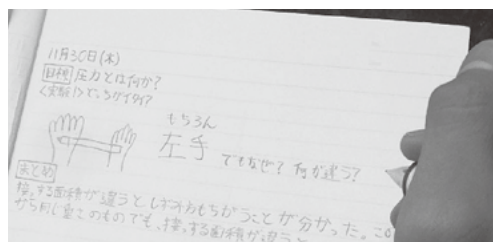 11月30日(木)
目標 圧力とは何か?
<実験1>どっちがイタイ?
もちろん
左手 でもなぜ? 何が違う?
まとめ
接する面積が違うと も ちがうことが分かった。この
から同じ重さのものでも、接する面積が違うと